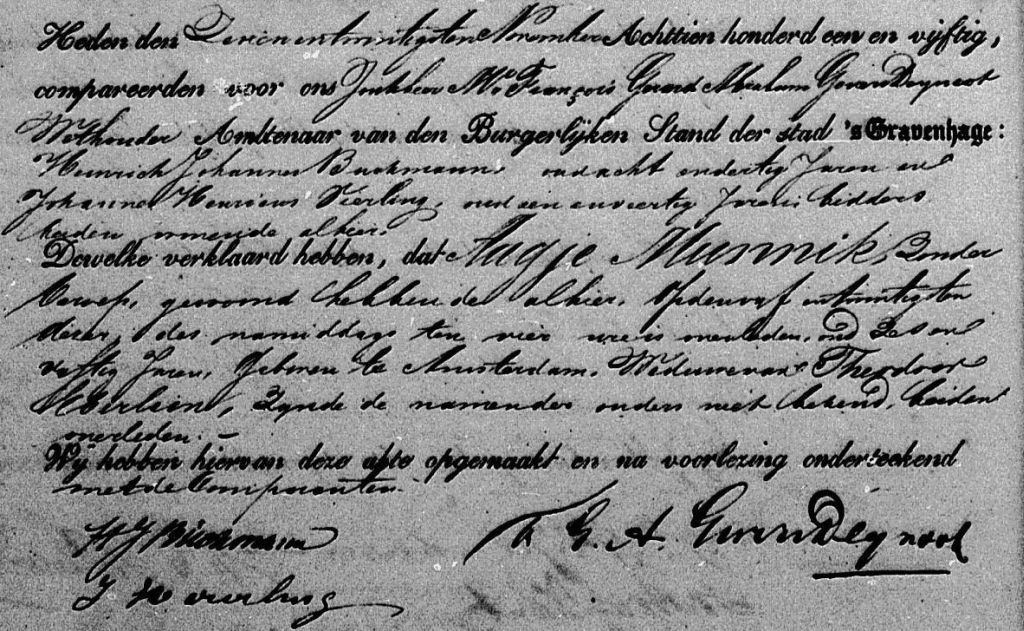 Heden den Zevenentwintigsten November Achttien honderd een en vijftig,
compareerden voor ons Jonkheer Mr François Gerard Abraham Gevers Deynoot
Wethouder Ambtenaar van den Burgerlijken Stand der stad 's Gravenhage:
Heinrich Johannes Buckmann oud acht en dertig Jaren en
Johannes Henricus Vierling, oud een en veertig Jaren bidders
beiden wonende alhier.
Dewelke verklaard hebben, dat Aagje Munnik, Zonder
beroep, gewoond hebbende alhier, Op den vyf entwintigsten
dezer, des namiddags ten vier ure is overleden, oud Zes en
vyftig Jaren, Geboren te Amsterdam, Weduwe van Theodoor
Zynde de namen der ouders niet bekend, beiden
overleden.
Wij hebben hiervan deze akte opgemaakt en na voorlezing onderteekend
met de Comparanten.
H J Buckmann
F. G. A. Gevers Deynoot
J H Vierling